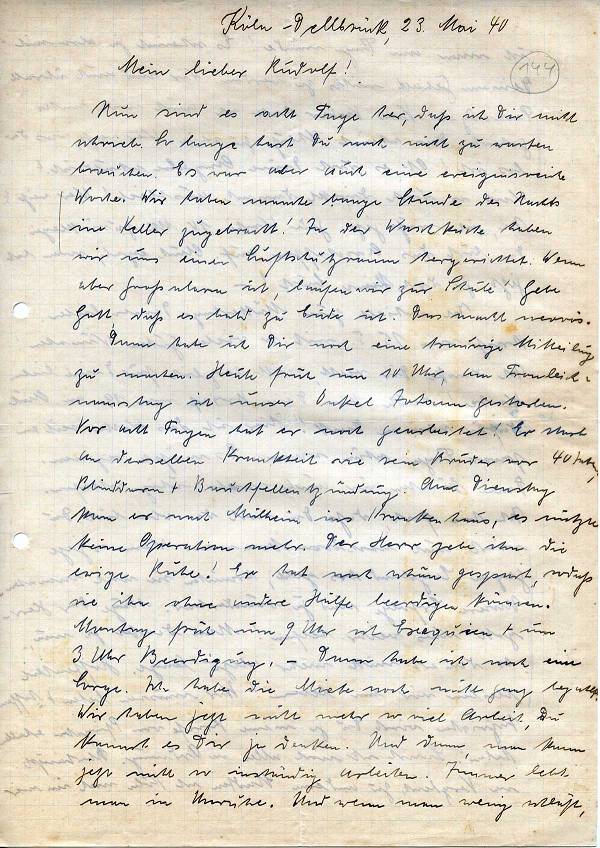 Köln-Dellbrück, 23. Mai 40
144
Mein lieber Rudolf!
Nun sind es acht Tage her, daß ich Dir nicht
schrieb. So lange hast Du noch nicht zu warten
brauchen. Es war aber auch eine ereignisreiche
Woche. Wir haben manche bange Stunde des Nachts
im Keller zugebracht! In der Waschküche haben
wir uns einen Luftschutzraum hergerichtet. Wenn
aber Großalarm ist, laufen wir zur Schule! Gebe
Gott, daß es bald zu Ende ist. Das macht nervös.
Dann habe ich Dir noch eine traurige Mitteilung
zu machen. Heute früh um 10 Uhr, am Fronleich-
namstag ist unser Onkel gestorben.
Vor acht Tagen hat er noch gearbeitet! Er starb
an derselben Krankheit wie sein Bruder vor 40 Jahren,
Blinddarm + Bauchfellentzündung. Am Dienstag
kam er nach Mülheim ins Krankenhaus, es nützte
keine Operation mehr. Der Herr gebe ihm die
ewige Ruhe! Er hat noch schön gespart, sodaß
sie ihn ohne andere Hilfe beerdigen können.
Montag früh um 9 Uhr ist Exequien + um
3 Uhr Beerdigung. – Dann habe ich noch eine
Sorge. Ich habe die Miete noch nicht ganz
Wir haben jetzt nicht mehr so viel Arbeit, Du
kannst es Dir ja denken. Und dann, man kann
jetzt nicht so inständig arbeiten. Immer lebt
man in Unruhe. Und wenn man wenig schläft,